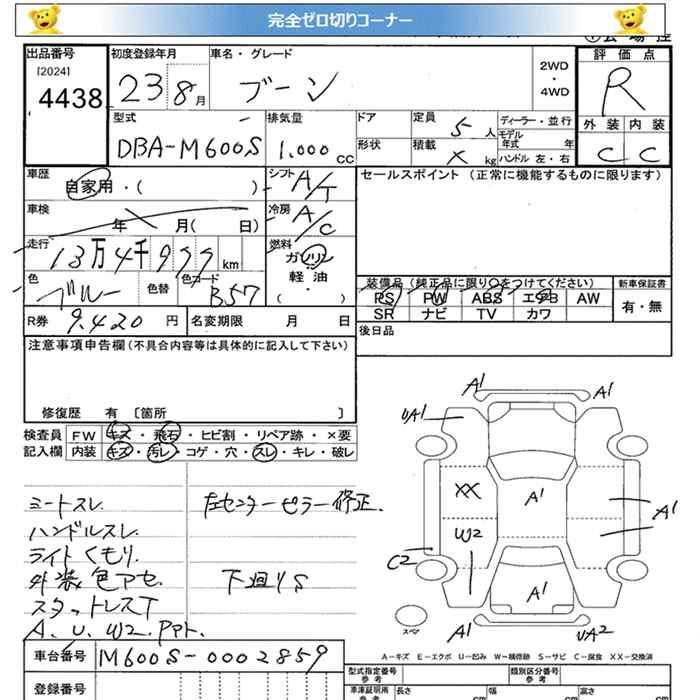 完全ゼロ切りコーナー
出品番号
[2024]
4438
初度登録年月
23 8月
車名・グレード
ブーン
2WD
・
4WD
評価点
R
外装 内装
C C
型式
DBA-M600S
排気量
1,000 cc
ドア
形状
定員 5 人
積載 X kg
ディーラー・並行
モデル
年式 年
ハンドル 左・右
車歴
自家用・( )
シフト A/T
車検
年 X 月( 日)
冷房 A/C
セールスポイント (正常に機能するものに限ります)
走行
13万4千999 km
燃料
ガソリン
軽・油
( )
色
ブルー
色替
色コード
B57
装備品 (純正品に限り〇をつけてください)
新車保証書
PS PW ABS エアB AW
SR ナビ TV カワ
有・無
R券 9,420 円
名変期限 月 日
後日品
注意事項申告欄(不具合内容等は具体的に記入して下さい)
修復歴 有 [箇所 ]
検査員
記入欄
FW キズ・飛石・ヒビ割・リペア跡・×要
内装 キズ・汚レ・コゲ・穴・スレ・キレ・破レ
シートスレ
ハンドルスレ.
ライトくもり.
外装色アセ.
スタットレスT
A. U. W2. PPt.
左センターピラー修正.
下廻りS
A1
A1
UA1
XX
A1
W2
A1
C2
A1
A1
UA2
スペア
A-キズ E-エクボ U-凹み W-補修跡 S-サビ C-腐食 XX-交換済
車台番号 M600S-0002859
登録番号
型式指定番号
参考
類別区分番号
参考
車庫証明用
参考
長さ cm
幅 cm
高さ cm